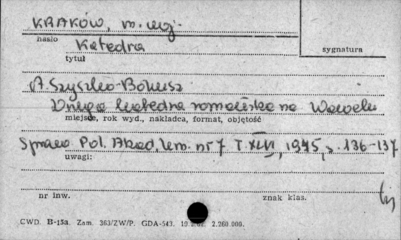 KRAKÓW, m. woj.
hasło
Katedra
tytuł
sygnatura
A. Szyszko-Bohusz
Druga katedra romańska na Wawelu
miejsce, rok wyd., nakładca, format, objętość
Spraw. Pol. Akad. Um. nr 7 T. XLVI, 1945, s. 136-137
uwagi:
nr inw.
znak klas.
CWD. B-15a. Zam. 363/ZW/P. GDA-543. 2.260.000.